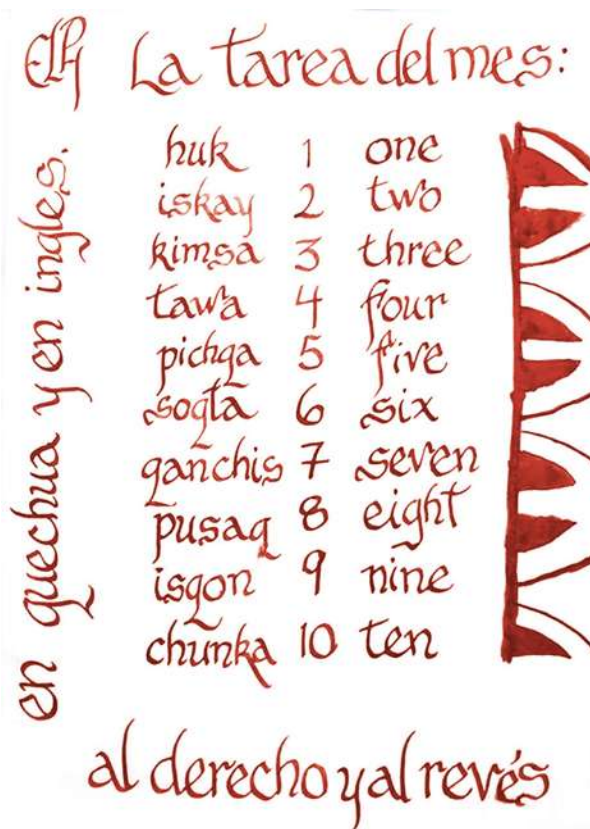 ELPH La tarea del mes:
en quechua y en ingles.
huk 1 one
iskay 2 two
kimsa 3 three
tawa 4 four
pichqa 5 five
soqta 6 six
qanchis 7 seven
pusaq 8 eight
isqon 9 nine
chunka 10 ten
al derecho y al revés